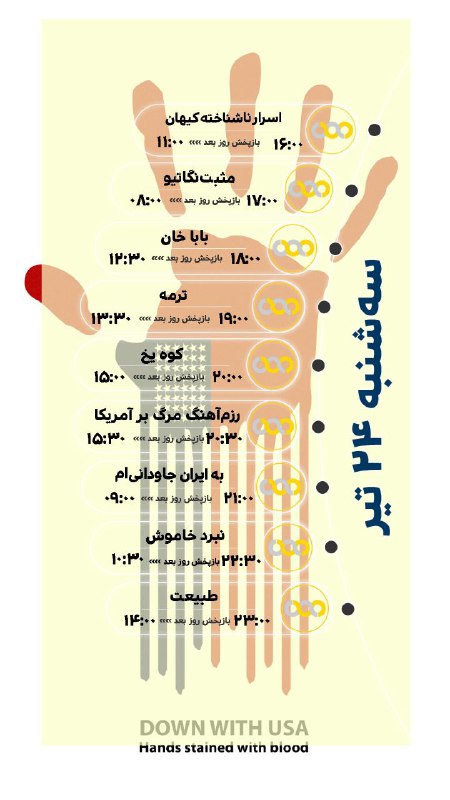 سه‌شنبه ۲۴ تیر
اسرار ناشناخته کیهان
۱۶:۰۰ بازپخش روز بعد »»» ۱۱:۰۰
مثبت نگاتیو
۱۷:۰۰ بازپخش روز بعد »»» ۰۸:۰۰
بابا خان
۱۸:۰۰ بازپخش روز بعد »»» ۱۲:۳۰
ترمه
۱۹:۰۰ بازپخش روز بعد »»» ۱۳:۳۰
کوه یخ
۲۰:۰۰ بازپخش روز بعد »»» ۱۵:۰۰
رزم‌آهنگ مرگ بر آمریکا
۲۰:۳۰ بازپخش روز بعد »»» ۱۵:۳۰
به ایران جاودانی‌ام
۲۱:۰۰ بازپخش روز بعد »»» ۰۹:۰۰
نبرد خاموش
۲۲:۳۰ بازپخش روز بعد »»» ۱۰:۳۰
طبیعت
۲۳:۰۰ بازپخش روز بعد »»» ۱۴:۰۰
DOWN WITH USA
Hands stained with blood